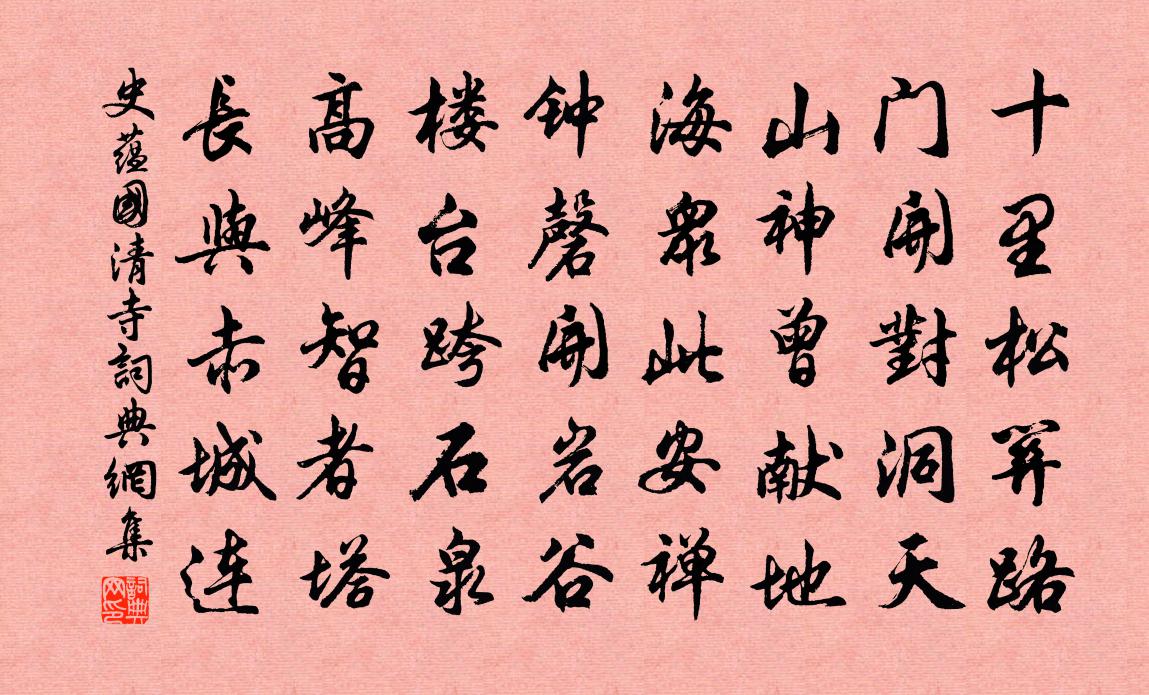 十里松路
门開對洞天
山神曾献地
海眾此安禅
钟磬開岩谷
楼台跨石泉
高峰智者塔
長與赤城连
史薀國清寺詞典網集
詞典网印